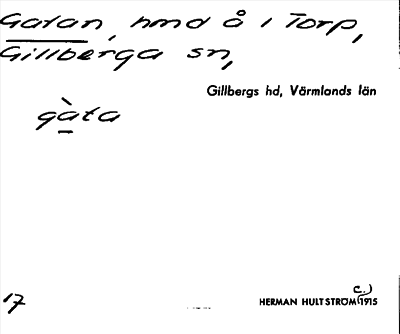 Gatan, hmd å i Torp,
Gillberga sn,
Gillbergs hd, Värmlands län
gàta
17
HERMAN HULTSTRÖM (c.) 1915